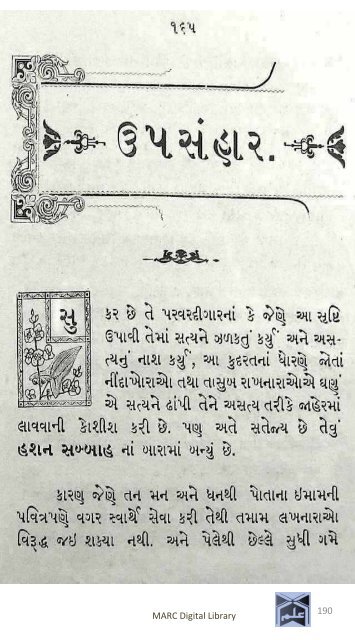 ૧૬૫
ઉપસંહાર.
સુકર છે તે પરવરદીગારનાં કે જેણે આ સૃષ્ટિ
ઉપાવી તેમાં સત્યને ઝળકતું કર્યું અને અસ-
ત્યનું નાશ કર્યું, આ કુદરતનાં ધોરણે જોતાં
નીંદાખોરોએ તથા તાસુબ રાખનારાઓએ ઘણું
એ સત્યને ઢાંપી તેને અસત્ય તરીકે જાહેરમાં
લાવવાની કોશીશ કરી છે. પણ અતે સતેજ્ય છે તેવું
હશન સબ્બાહ નાં બારામાં બન્યું છે.
કારણ જેણે તન મન અને ધનથી પોતાના ઇમામની
પવિત્રપણે વગર સ્વાર્થે સેવા કરી તેથી તમામ લખનારાઓ
વિરૂદ્ધ જઇ શક્યા નથી. અને પેલેથી છેલ્લે સુધી ગમે
MARC Digital Library
190